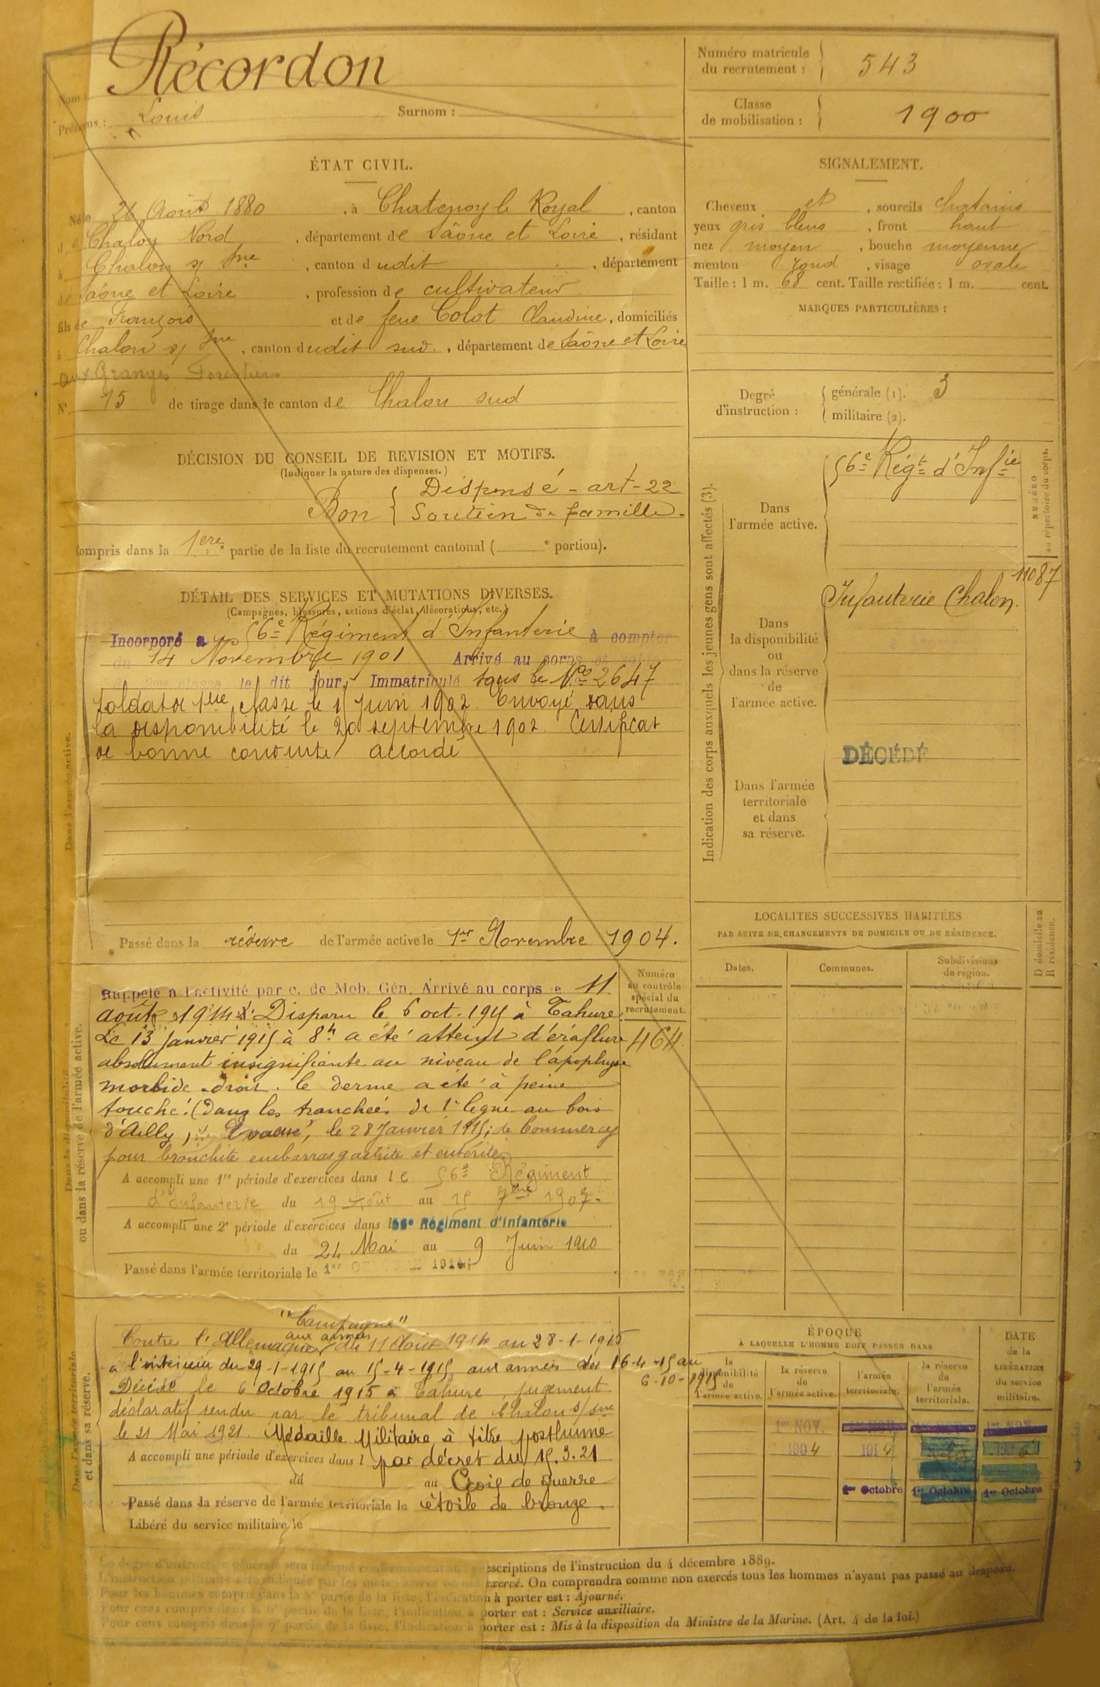 Nom : Récordon
Prénoms : Louis Surnom :
Numéro matricule du recrutement : 543
Classe de mobilisation : 1900
ÉTAT CIVIL.
Né le 26 Août 1880, à Chatenoy le Royal, canton
de Chalon Nord, département de Saône et Loire, résidant
à Chalon s/ Sne, canton dudit, département
de Saône et Loire, profession de cultivateur
fils de François et de feue Colot Claudine, domiciliés
à Chalon s/ Sne, canton dudit sud, département de Saône et Loire
aux Granges Forestiers
N° 15 de tirage dans le canton de Chalon sud
SIGNALEMENT.
Cheveux et, sourcils chatains
yeux gris bleus, front haut
nez moyen, bouche moyenne
menton rond, visage ovale
Taille : 1 m. 68 cent. Taille rectifiée : 1 m. cent.
MARQUES PARTICULIÈRES :
Degré d'instruction : générale (1). 3
militaire (2).
DÉCISION DU CONSEIL DE REVISION ET MOTIFS.
(Indiquer la nature des dispenses.)
Bon { Dispensé - art - 22
Soutien de famille.
Compris dans la 1ere partie de la liste du recrutement cantonal ( e portion).
DÉTAIL DES SERVICES ET MUTATIONS DIVERSES.
(Campagnes, blessures, actions d'éclat, décorations, etc.)
Incorporé au 56e Régiment d'Infanterie à compter
du 14 Novembre 1901 Arrivé au corps et
le dit jour, Immatriculé sous le No 2647
Soldat de 1re classe le 1 juin 1902 Envoyé dans
la disponibilité le 20 septembre 1902 Certificat
de bonne conduite accordé
Passé dans la réserve de l'armée active le 1er Novembre 1904.
Indication des corps auxquels les jeunes gens sont affectés (3).
Dans l'armée active.
56e Régt d'Infie
NUMÉRO au répertoire du corps.
11087
Infanterie Chalon
Dans la disponibilité ou dans la réserve de l'armée active.
DÉCÉDÉ
Dans l'armée territoriale et dans sa réserve.
LOCALITÉS SUCCESSIVES HABITÉES
PAR SUITE DE CHANGEMENTS DE DOMICILE OU DE RÉSIDENCE.
Dates. Communes. Subdivisions de région. D domicile ou R résidence.
Numéro au contrôle spécial du recrutement.
464
Dans la disponibilité ou dans la réserve de l'armée active.
Rappelé à l'activité par o. de Mob. Gén. Arrivé au corps le 11
août 1914 Disparu le 6 oct. 1915 à Tahure
Le 13 janvier 1915 à 8h a été atteint d'éraflure
absolument insignifiante au niveau de l'apophyse
morbide droit. le derme a été à peine
touché. (Dans les tranchées de 1e ligne au bois
d'Ailly, Evacué, le 28 Janvier 1915, de Commercy
pour bronchite embarras gastrite et entérite
A accompli une 1re période d'exercices dans le 56e Régiment
d'infanterie du 19 août au 15 7bre 1907.
A accompli une 2e période d'exercices dans le 56e Régiment d'Infanterie
du 24 Mai au 9 Juin 1910
Passé dans l'armée territoriale le 1er 1914
Dans l'armée territoriale et dans sa réserve.
"Campagne"
Contre l'Allemagne aux armées du 11 Août 1914 au 28-1-1915
à l'intérieur du 29-1-1915 au 15-4-1915 aux armées du 16-4-15 au
6-10-1915
Décédé le 6 Octobre 1915 à Tahure, jugement
déclaratif rendu par le tribunal de Chalon s/ Sne
le 21 Mai 1921. Médaille Militaire à titre posthume
A accompli une période d'exercices dans l par décret du 15.3.21
du au Croix de guerre
Passé dans la réserve de l'armée territoriale le étoile de bronze.
Libéré du service militaire le
ÉPOQUE
À LAQUELLE L'HOMME DOIT PASSER DANS
la disponibilité de l'armée active. la réserve de l'armée active. l'armée territoriale. la réserve de l'armée territoriale.
DATE de la LIBÉRATION du service militaire.
1er NOV. 1904
1914
1er Octobre 1er Octobre 1er Octobre
Le degré d'instruction générale sera indiqué conformément aux prescriptions de l'instruction du 4 décembre 1889.
exercé. On comprendra comme non exercés tous les hommes n'ayant pas passé au drapeau.
Pour les hommes compris dans la partie de la liste, l'indication à porter est : Ajourné.
Pour ceux compris dans la 6e partie de la liste, l'indication à porter est : Service auxiliaire.
Pour ceux compris dans la 7e partie de la liste, l'indication à porter est : Mis à la disposition du Ministre de la Marine. (Art. 4 de la loi.)